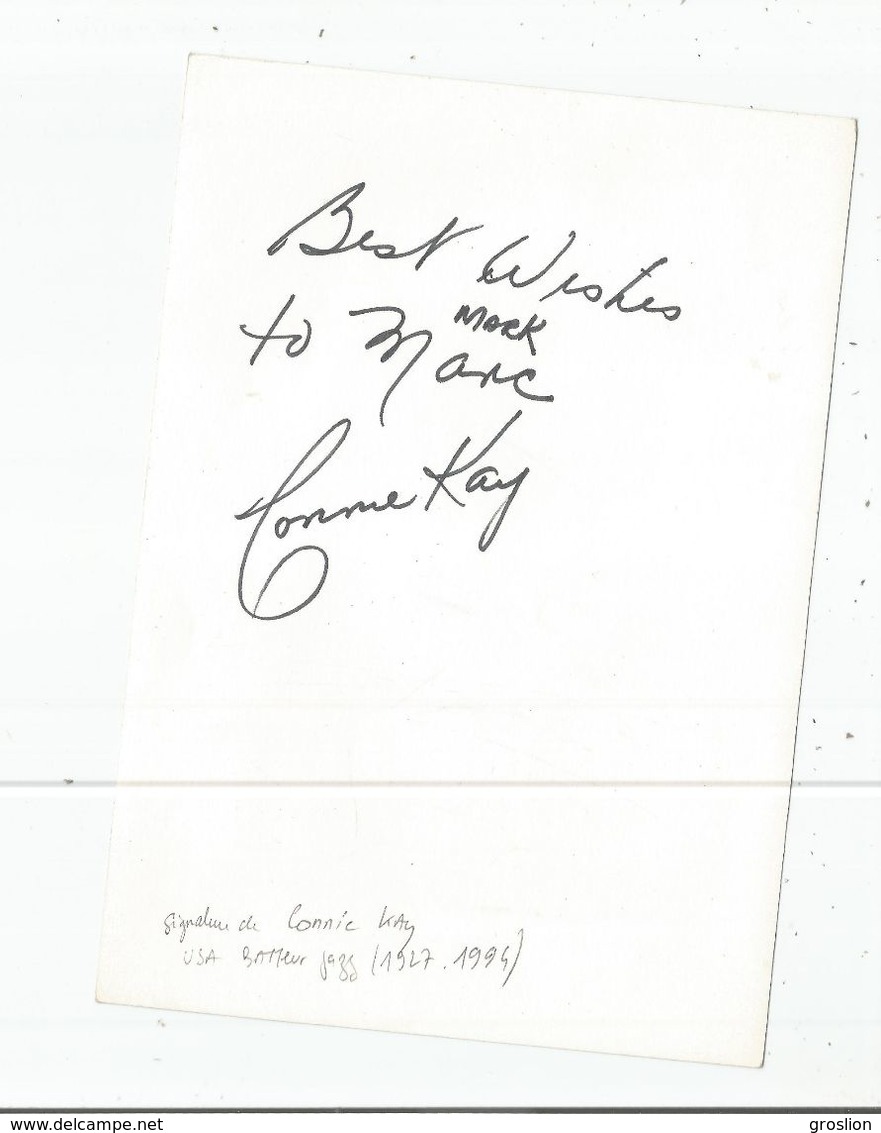 Best Wishes
Mark
to Marc
Connie Kay
signature de Connie Kay
USA Batteur jazz (1927.1994)
www.delcampe.net
groslion